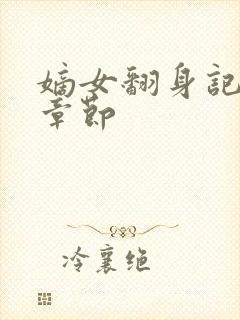 嫡女翻身記
章節
冷襄绝